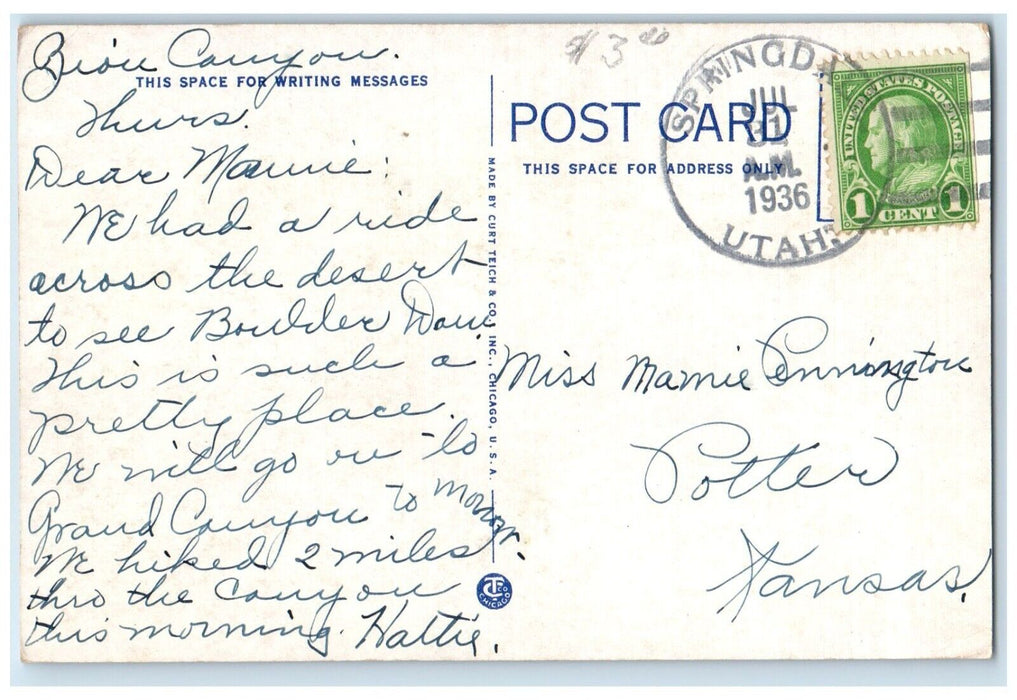 Zion Canyon.
THIS SPACE FOR WRITING MESSAGES
Thurs.
Dear Mamie:
We had a ride
across the desert
to see Boulder Dam.
This is such a
pretty place.
We will go on to
Grand Canyon to morrow.
We hiked 2 miles
thro the Canyon
this morning. Hattie.
MADE BY CURT TEICH & CO., INC., CHICAGO, U.S.A.
CTCO
CHICAGO
$3.00
POST CARD
THIS SPACE FOR ADDRESS ONLY
SPRINGDALE
JUL
31
A.M.
1936
UTAH.
UNITED STATES POSTAGE
FRANKLIN
1 CENT 1
Miss Mamie Pennington
Potter
Kansas.